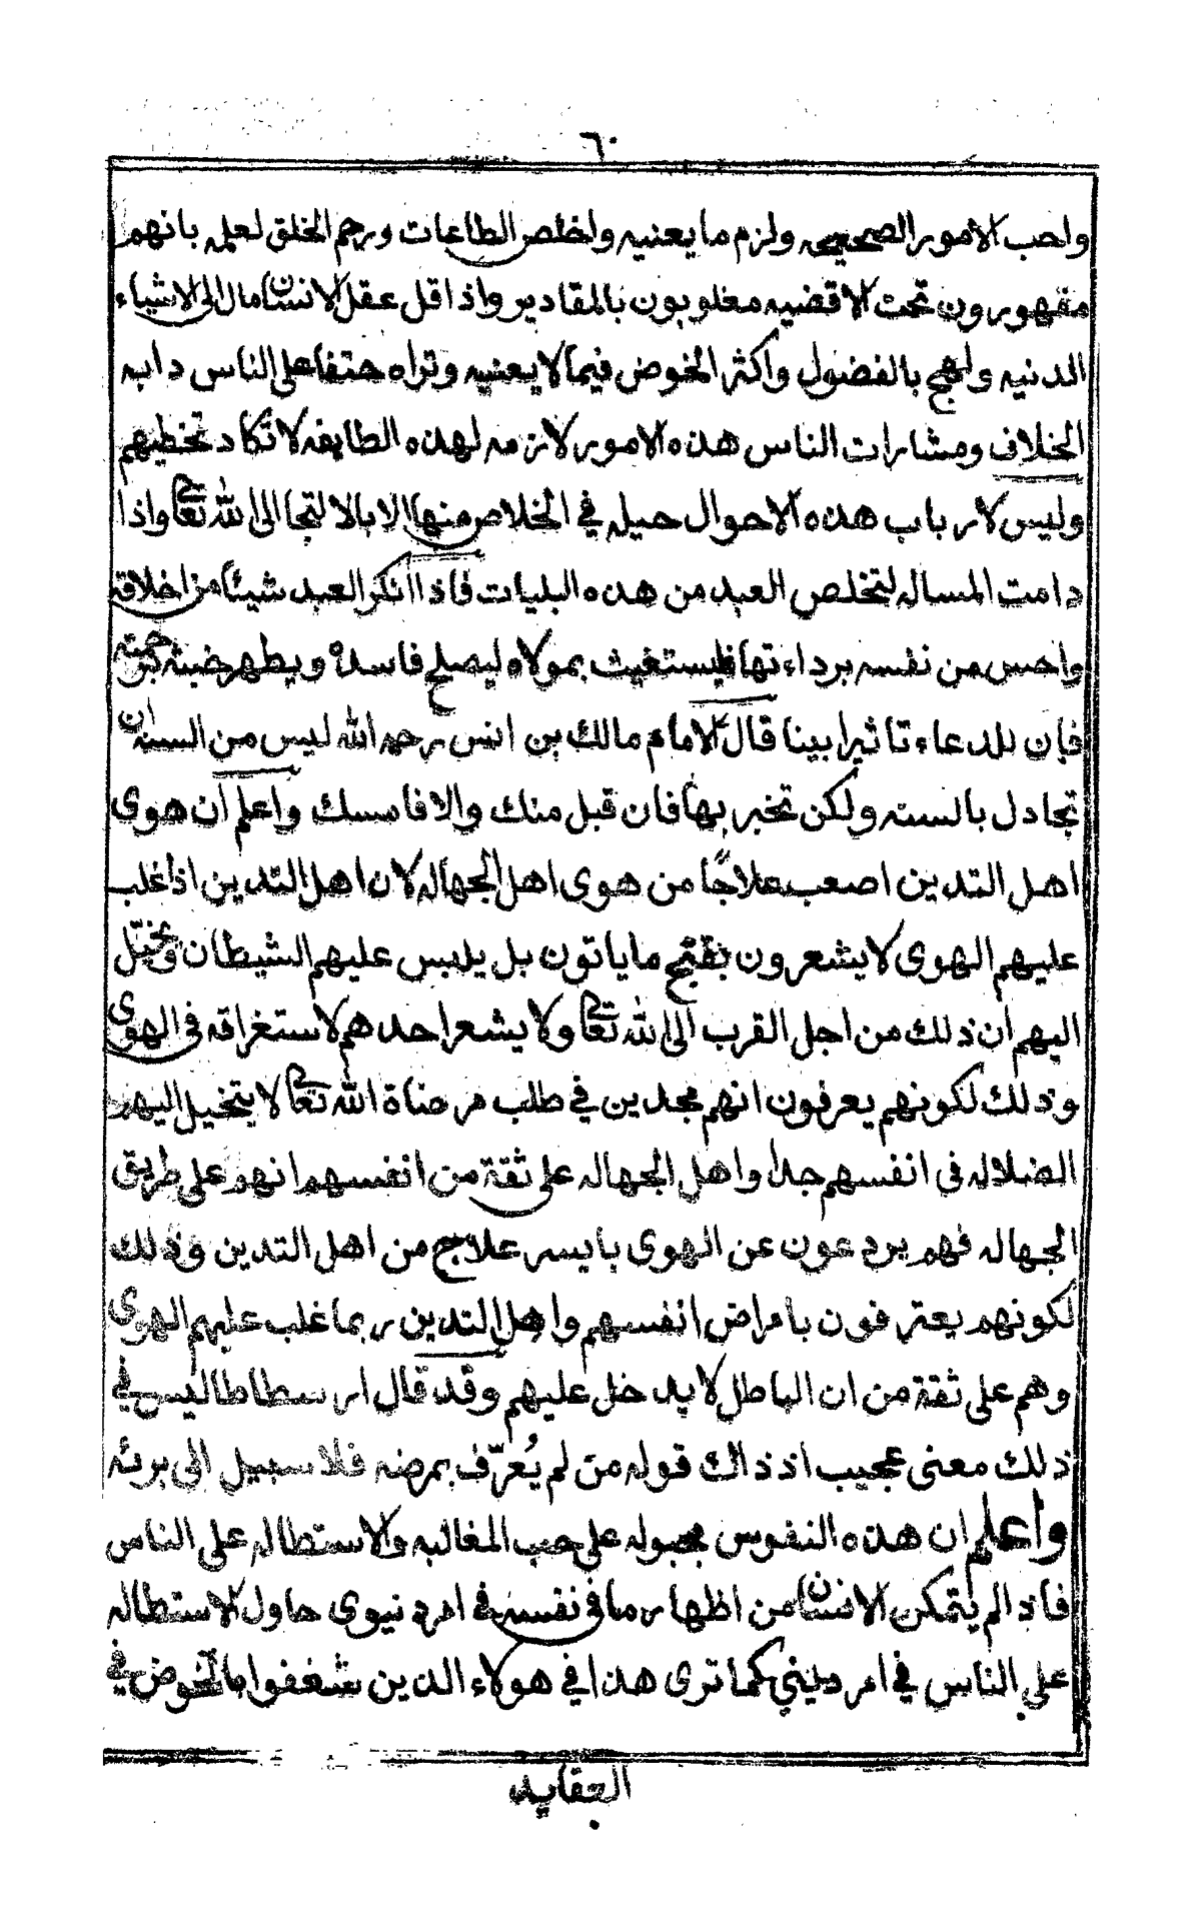 ٦٠
واحب الامور الصحيحه ولزم ما يعنيه واخلص الطاعات ورحم الخلق لعلمه بانهم
مقهورون تحت الاقضيه مغلوبون بالمقادير واذا قل عقل الانسان مال الى الاشياء
الدنيه ولهج بالفضول واكثر الخوض فيما لا يعنيه وتراه حتفا على الناس دابه
الخلاف ومشارات الناس هذه الامور لازمه لهذه الطايفه لا تكاد تخطيهم
وليس لارباب هذه الاحوال حيله في الخلاص منها الا بالالتجا الى الله تعالى واذا
دامت المساله لتخلص العبد من هذه البليات فاذا انكر العبد شيئا من اخلاقه
واحس من نفسه برداءتها فليستغيث بمولاه ليصلح فاسده ويطهر خبثه برحمته
فان للدعاء تاثيرا بينا قال الامام مالك بن انس رحمه الله ليس من السنه ان
تجادل بالسنه ولكن تخبر بها فان قبل منك والا فامسك واعلم ان هوى
اهل التدين اصعب علاجًا من هوى اهل الجهاله لان اهل التدين اذا غلب
عليهم الهوى لا يشعرون بقبح ما ياتون بل يلبس عليهم الشيطان ويخيّل
اليهم ان ذلك من اجل القرب الى الله تعالى ولا يشعر احدهم لاستغراقه في الهوى
وذلك لكونهم يعرفون انهم مجدين في طلب مرضاة الله تعالى لا يتخيل اليهم
الضلاله في انفسهم جدا واهل الجهاله على ثقة من انفسهم انهم على طريق
الجهاله فهم يردعون عن الهوى بايسر علاج من اهل التدين وذلك
لكونهم يعترفون بامراض انفسهم واهل التدين ربما غلب عليهم الهوى
وهم على ثقة من ان الباطل لا يدخل عليهم وقد قال ارسطاطاليس في
ذلك معنى عجيب اذ ذاك قوله من لم يُعرّف بمرضه فلا سبيل الى برئه
واعلم ان هذه النفوس مجبوله على حب المغالبه والاستطاله على الناس
فاذا لم يتمكن الانسان من اظهار ما في نفسه في امر دنيوى حاول الاستطاله
على الناس في امر ديني كما ترى هذا في هولاء الدين شغفوا بالخوض في
العقايد